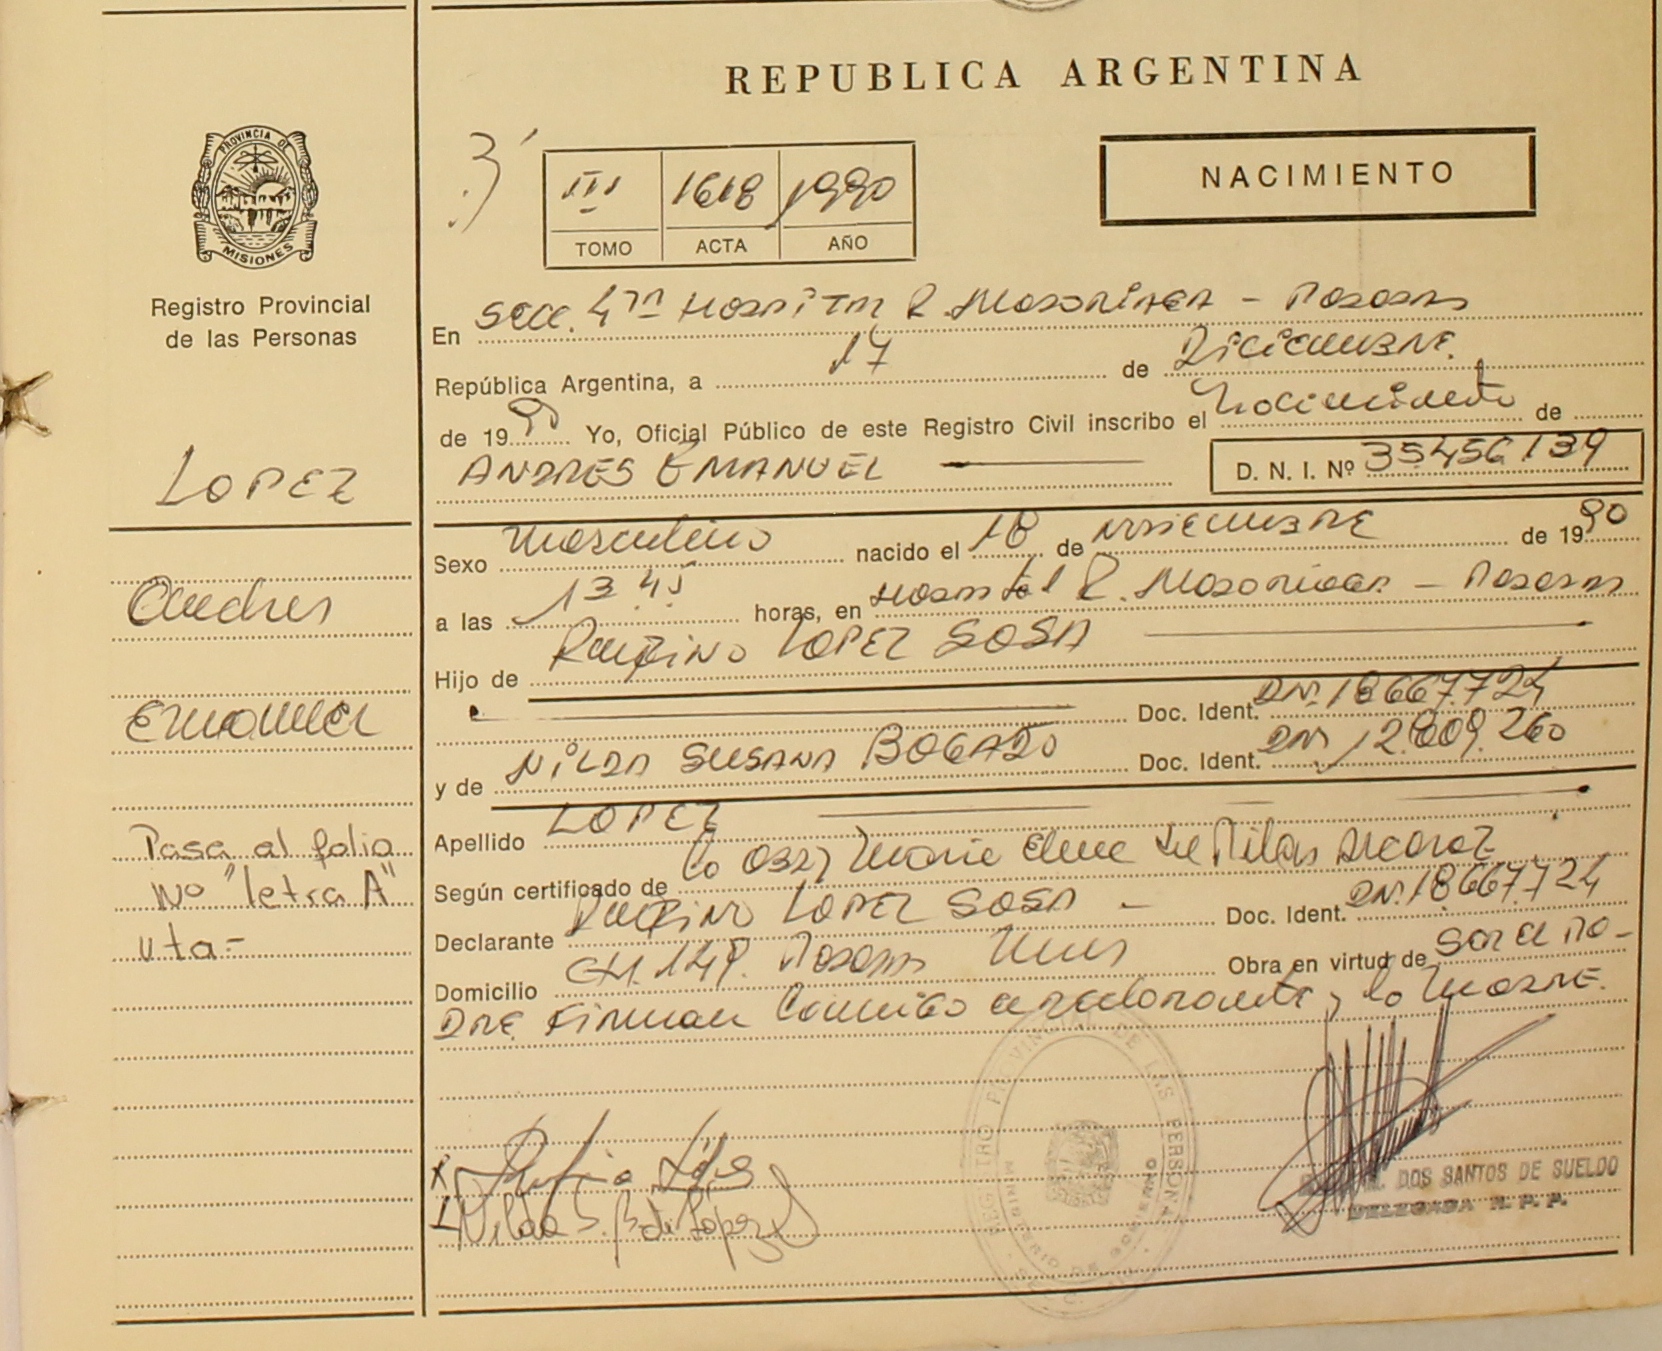 REPUBLICA ARGENTINA
PROVINCIA DE
MISIONES
Registro Provincial
de las Personas
III 1618 1990
TOMO ACTA AÑO
NACIMIENTO
En Secc. 4ta Hospital R. Madariaga - Posadas
República Argentina, a 17 de Diciembre
de 1990 Yo, Oficial Público de este Registro Civil inscribo el Nacimiento de
ANDRES EMANUEL D. N. I. Nº 35456139
LOPEZ
Andres
Emanuel
Pasa al folio
Nº "letra A"
vta=
Sexo Masculino nacido el 18 de Noviembre de 1990
a las 13 45 horas, en Hospital R. Madariaga - Posadas
Hijo de Rufino LOPEZ SOSA
Doc. Ident. DNI. 18667.724
y de NILDA SUSANA BOGADO Doc. Ident. DNI 12.809.260
Apellido LOPEZ
Según certificado de la Obst Maria Elena de
Declarante Rufino LOPEZ SOSA - Doc. Ident. DNI. 18.667.724
Domicilio CH. 148. Posadas Mnes Obra en virtud de ser el pa-
dre Firman conmigo el declarante y la madre.
REGISTRO PROVINCIAL DE LAS PERSONAS
MINISTERIO DE GOBIERNO
Rufino López
Nilda S. B de López
M. DOS SANTOS DE SUELDO
DELEGADA R. P. P.